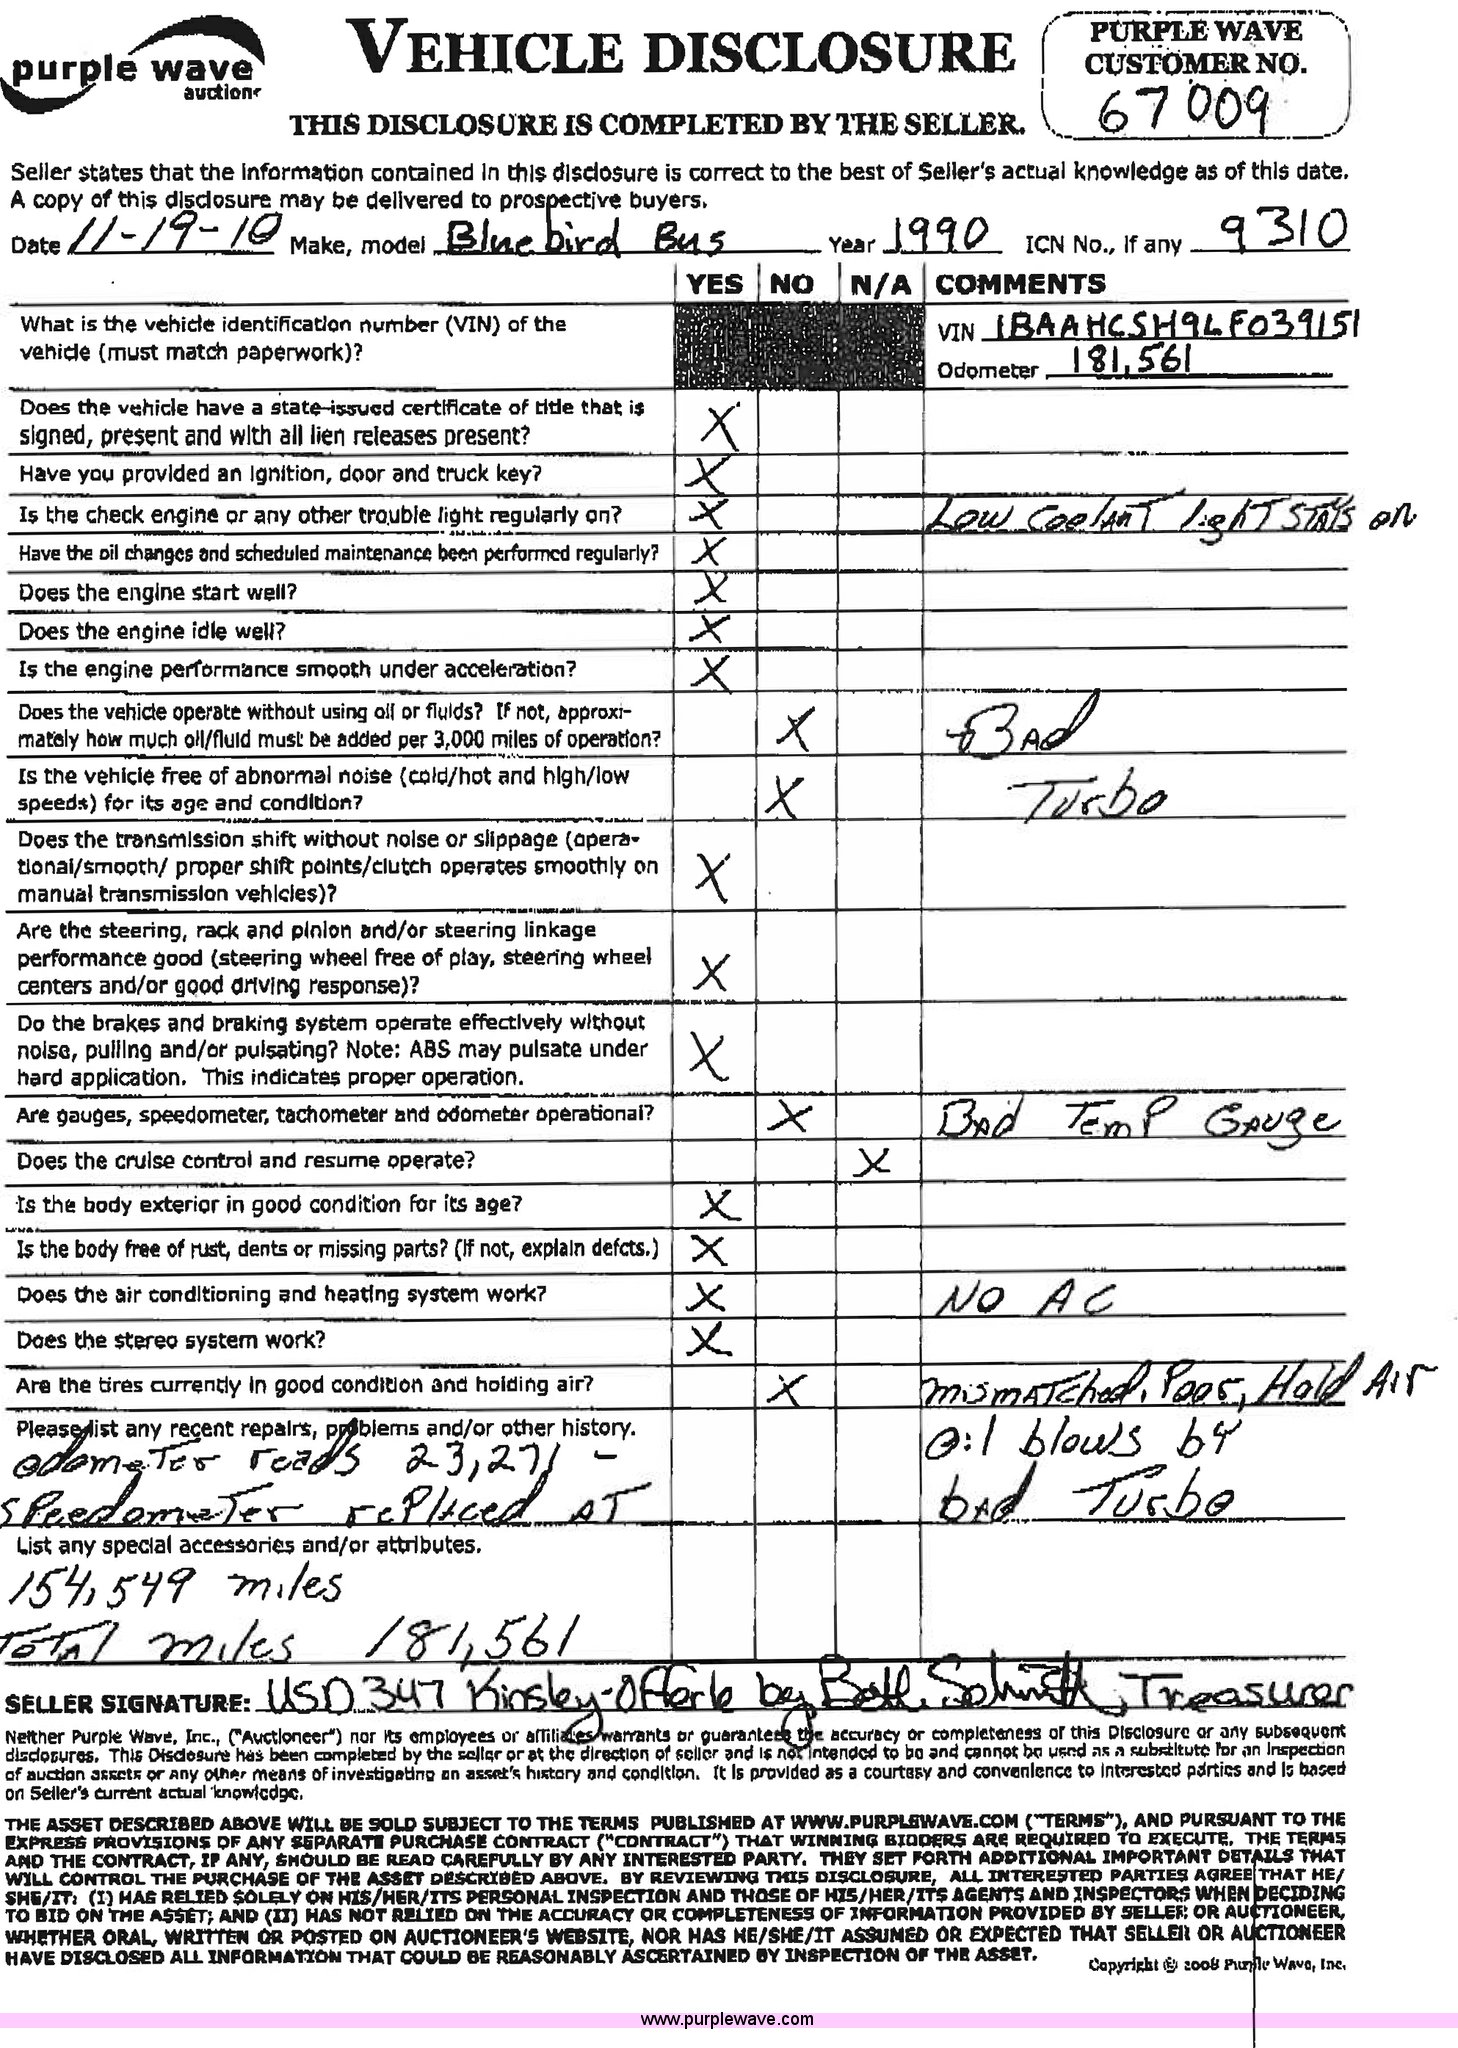 purple wave
auction
VEHICLE DISCLOSURE
THIS DISCLOSURE IS COMPLETED BY THE SELLER.
PURPLE WAVE
CUSTOMER NO.
67009
Seller states that the information contained in this disclosure is correct to the best of Seller's actual knowledge as of this date.
A copy of this disclosure may be delivered to prospective buyers.
Date 11-19-10 Make, model Bluebird Bus Year 1990 ICN No., if any 9310
YES NO N/A COMMENTS
What is the vehicle identification number (VIN) of the
vehicle (must match paperwork)?
VIN 1BAAHCSH9LF039151
Odometer 181,561
Does the vehicle have a state-issued certificate of title that is
signed, present and with all lien releases present? X
Have you provided an ignition, door and truck key? X
Is the check engine or any other trouble light regularly on? X Low Coolant light stays on
Have the oil changes and scheduled maintenance been performed regularly? X
Does the engine start well? X
Does the engine idle well? X
Is the engine performance smooth under acceleration? X
Does the vehicle operate without using oil or fluids? If not, approxi-
mately how much oil/fluid must be added per 3,000 miles of operation? X Bad
Is the vehicle free of abnormal noise (cold/hot and high/low
speeds) for its age and condition? X Turbo
Does the transmission shift without noise or slippage (opera-
tional/smooth/ proper shift points/clutch operates smoothly on
manual transmission vehicles)? X
Are the steering, rack and pinion and/or steering linkage
performance good (steering wheel free of play, steering wheel
centers and/or good driving response)? X
Do the brakes and braking system operate effectively without
noise, pulling and/or pulsating? Note: ABS may pulsate under
hard application. This indicates proper operation. X
Are gauges, speedometer, tachometer and odometer operational? X Bad Temp Gauge
Does the cruise control and resume operate? X
Is the body exterior in good condition for its age? X
Is the body free of rust, dents or missing parts? (If not, explain defcts.) X
Does the air conditioning and heating system work? X No AC
Does the stereo system work? X
Are the tires currently in good condition and holding air? X mismatched, Poor, Hold Air
Please list any recent repairs, problems and/or other history. oil blows by
odometer reads 23,271 -
speedometer replaced at bad Turbo
List any special accessories and/or attributes.
154,549 miles
Total miles 181,561
SELLER SIGNATURE: USD 347 Kinsley-Offerle by Beth Schmidt, Treasurer
Neither Purple Wave, Inc., ("Auctioneer") nor its employees or affiliates warrants or guarantees the accuracy or completeness of this Disclosure or any subsequent
disclosures. This Disclosure has been completed by the seller or at the direction of seller and is not intended to be and cannot be used as a substitute for an inspection
of auction assets or any other means of investigating an asset's history and condition. It is provided as a courtesy and convenience to interested parties and is based
on Seller's current actual knowledge.
THE ASSET DESCRIBED ABOVE WILL BE SOLD SUBJECT TO THE TERMS PUBLISHED AT WWW.PURPLEWAVE.COM ("TERMS"), AND PURSUANT TO THE
EXPRESS PROVISIONS OF ANY SEPARATE PURCHASE CONTRACT ("CONTRACT") THAT WINNING BIDDERS ARE REQUIRED TO EXECUTE. THE TERMS
AND THE CONTRACT, IF ANY, SHOULD BE READ CAREFULLY BY ANY INTERESTED PARTY. THEY SET FORTH ADDITIONAL IMPORTANT DETAILS THAT
WILL CONTROL THE PURCHASE OF THE ASSET DESCRIBED ABOVE. BY REVIEWING THIS DISCLOSURE, ALL INTERESTED PARTIES AGREE THAT HE/
SHE/IT: (I) HAS RELIED SOLELY ON HIS/HER/ITS PERSONAL INSPECTION AND THOSE OF HIS/HER/ITS AGENTS AND INSPECTORS WHEN DECIDING
TO BID ON THE ASSET; AND (II) HAS NOT RELIED ON THE ACCURACY OR COMPLETENESS OF INFORMATION PROVIDED BY SELLER OR AUCTIONEER,
WHETHER ORAL, WRITTEN OR POSTED ON AUCTIONEER'S WEBSITE, NOR HAS HE/SHE/IT ASSUMED OR EXPECTED THAT SELLER OR AUCTIONEER
HAVE DISCLOSED ALL INFORMATION THAT COULD BE REASONABLY ASCERTAINED BY INSPECTION OF THE ASSET.
Copyright © 2008 Purple Wave, Inc.
www.purplewave.com